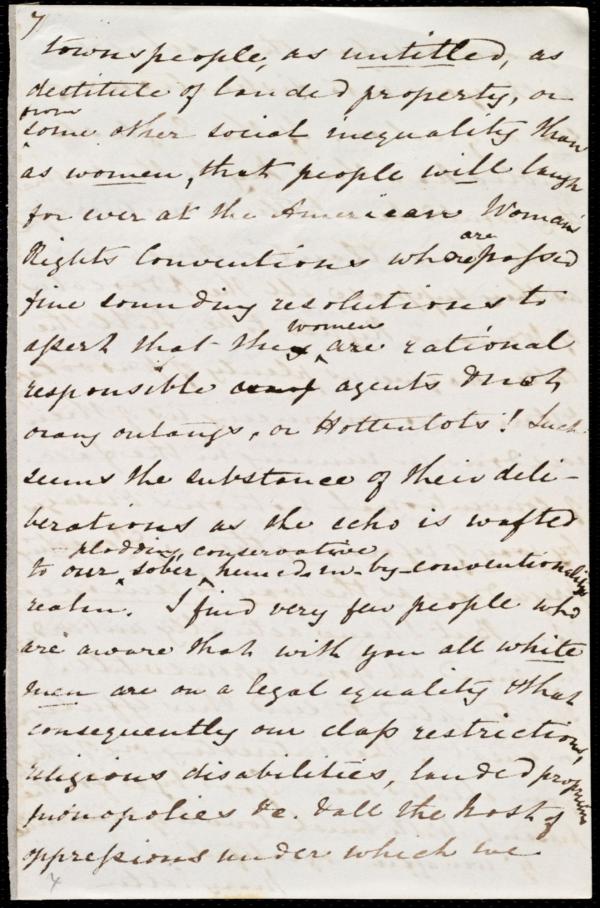 7
townspeople, as untitled, as
destitute of landed property, or
from
some other social inequality than
as women, that people will laugh
for ever at the American Woman's
are
Rights Conventions where passed
fine sounding resolutions to
women
assert that they are rational
responsible agents & not
orang outangs, or Hottentots! Such
seems the substance of their deli-
berations as the echo is wafted
plodding, conservative
to our sober, hemed-in-by-conventionality
realm. I find very few people who
are aware that with you all white
men are on a legal equality & that
consequently our class restrictions,
religious disabilities, landed propertied
monopolies &c. & all the host of
oppressions under which we